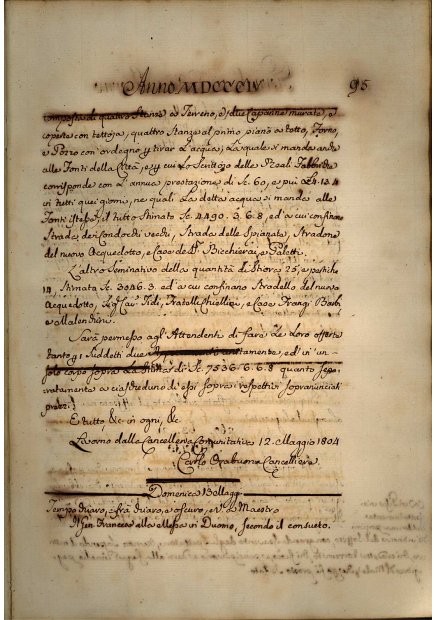 Anno MDCCCIV 95
composta di quattro Stanze a Terreno, e due Capanne murate, e
coperte con tettoja, quattro Stanze al primo piano a tetto, Forno,
e Pozzo con ordegno p tirar L'acqua, La quale si manda anche
alle Fonti della Città, e p cui Lo Scrittojo delle Reali Fabbriche
corrisponde con L'annua prestazione di Sc. 60, e più L4.13.4
in tutti quei giorni, ne quali La detta acqua si manda alle
Fonti istesse, il tutto Stimato Sc. 4490.3.6.8, ed a cui confinano
Strada dei Condotti vecchi, Strada delle Spianate, Stradone
del nuovo Acquedotto, e Case de' Bicchierai, e Paletti.
L'altro Seminativo della quantità di Stiora 25, e pertiche
14, Stimata Sc. 3046.3. ed a cui confinano Stradello del nuovo
Acquedotto, Fratelli Chiellini, e Case Franc.
e Malenchini.
Sarà permesso agl'Attendenti di fare Le Loro offerte
tanto p i Suddetti due unitamente, ed in un
solo corpo sopra La Stima di Sc. 7536.6.6.8 quanto sepa-
ratamente a ciascheduno di essi sopra i respettivi sopranunciati
prezzi.
E tutto &c in ogni, &c.
Livorno dalla Cancelleria Comunitativa 12. Maggio 1804
Carlo Orabuona Cancelliere
Domenica 13 Magg:
Tempo chiaro, e frà chiaro, e oscuro, e Maestro
Il Sen. Francesco alla Messa in Duomo, secondo il consueto.